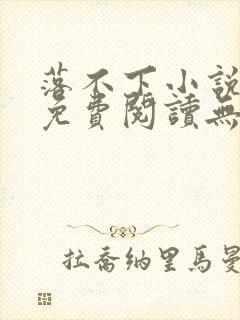 落不下小說
免費閱讀無
拉喬納里馬曼